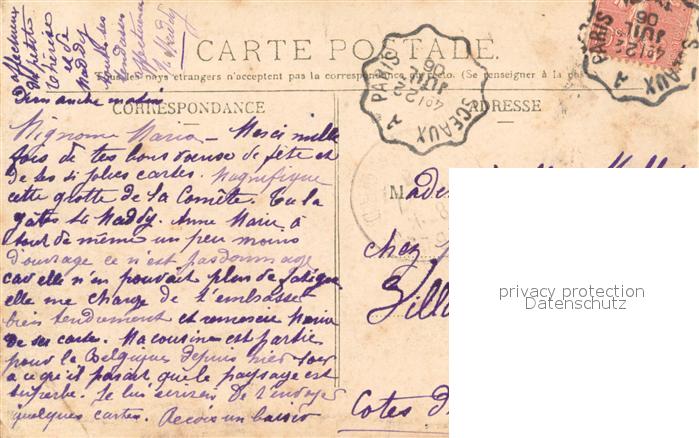 CARTE POSTALE
Tous les pays étrangers n'acceptent pas la correspondance au recto. (Se renseigner à la poste
CORRESPONDANCE
ADRESSE
Dimanche matin
Mignonne Maria – Merci mille
fois de tes bons vœux de fête et
de tes si jolies cartes. Magnifique
cette grotte de la Comète. Tu la
gâtes ta Maddy. Anne Marie a
tout de même un peu moins
d'ouvrage ce n'est pas dommage
car elle n'en pouvait plus de fatigue
elle me charge de t'embrasser
bien tendrement et remercie Maria
de ses cartes. Ma cousine est partie
pour la Belgique depuis hier soir
a ce qu'il parait que le paysage est
superbe. Je lui écrirai de t'envoyer
quelques cartes. Reçois un baiser
affectueux
de ta petite
et de
Maddy
Toutes les
tendresses
affectueuses
M
Made
chez
Cotes d
PARIS A SCEAUX
4e 12 2
JUIL
06
PARIS A SCEAUX
4e 12 2
JUIL
06
privacy protection
Datenschutz